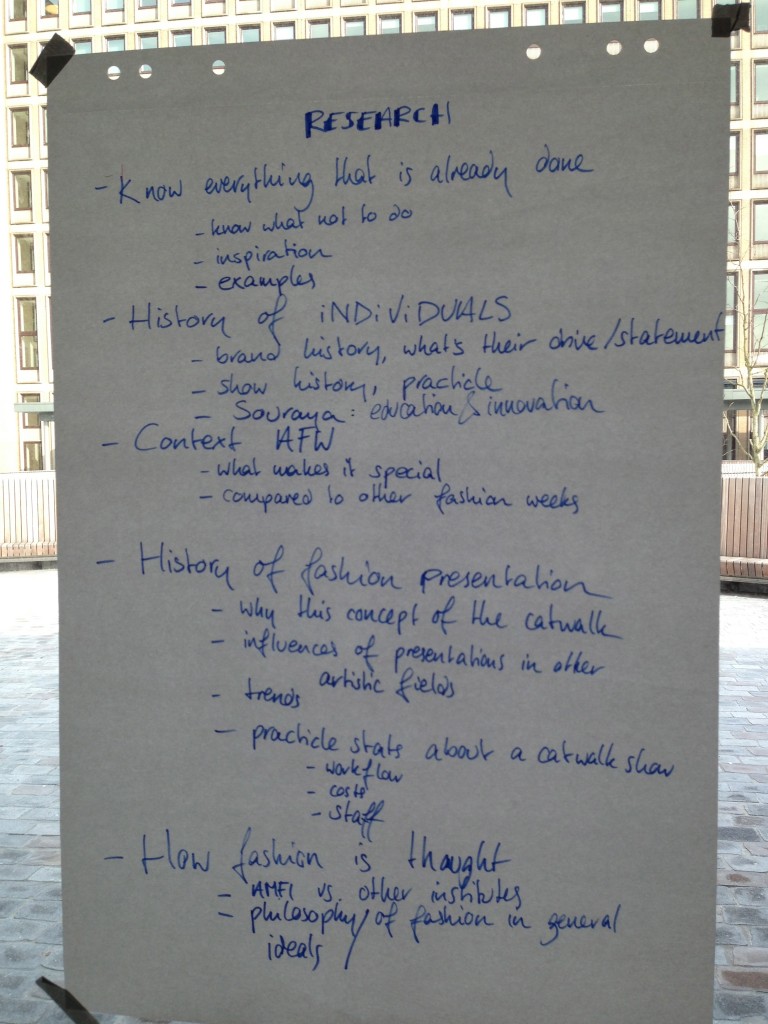 RESEARCH
- Know everything that is already done
- know what not to do
- inspiration
- examples
- History of iNDiViDUALS
- brand history, what's their drive/statement
- show history, practicle
- Souraya: education & innovation
- Context AFW
- what makes it special
- compared to other fashion weeks
- History of fashion presentation
- why this concept of the catwalk
- influences of presentations in other
artistic fields
- trends
- practicle stats about a catwalk show
- workflow
- costs
- staff
- How fashion is thought
- AMFI vs. other institutes
- philosophy/of fashion in general
ideals